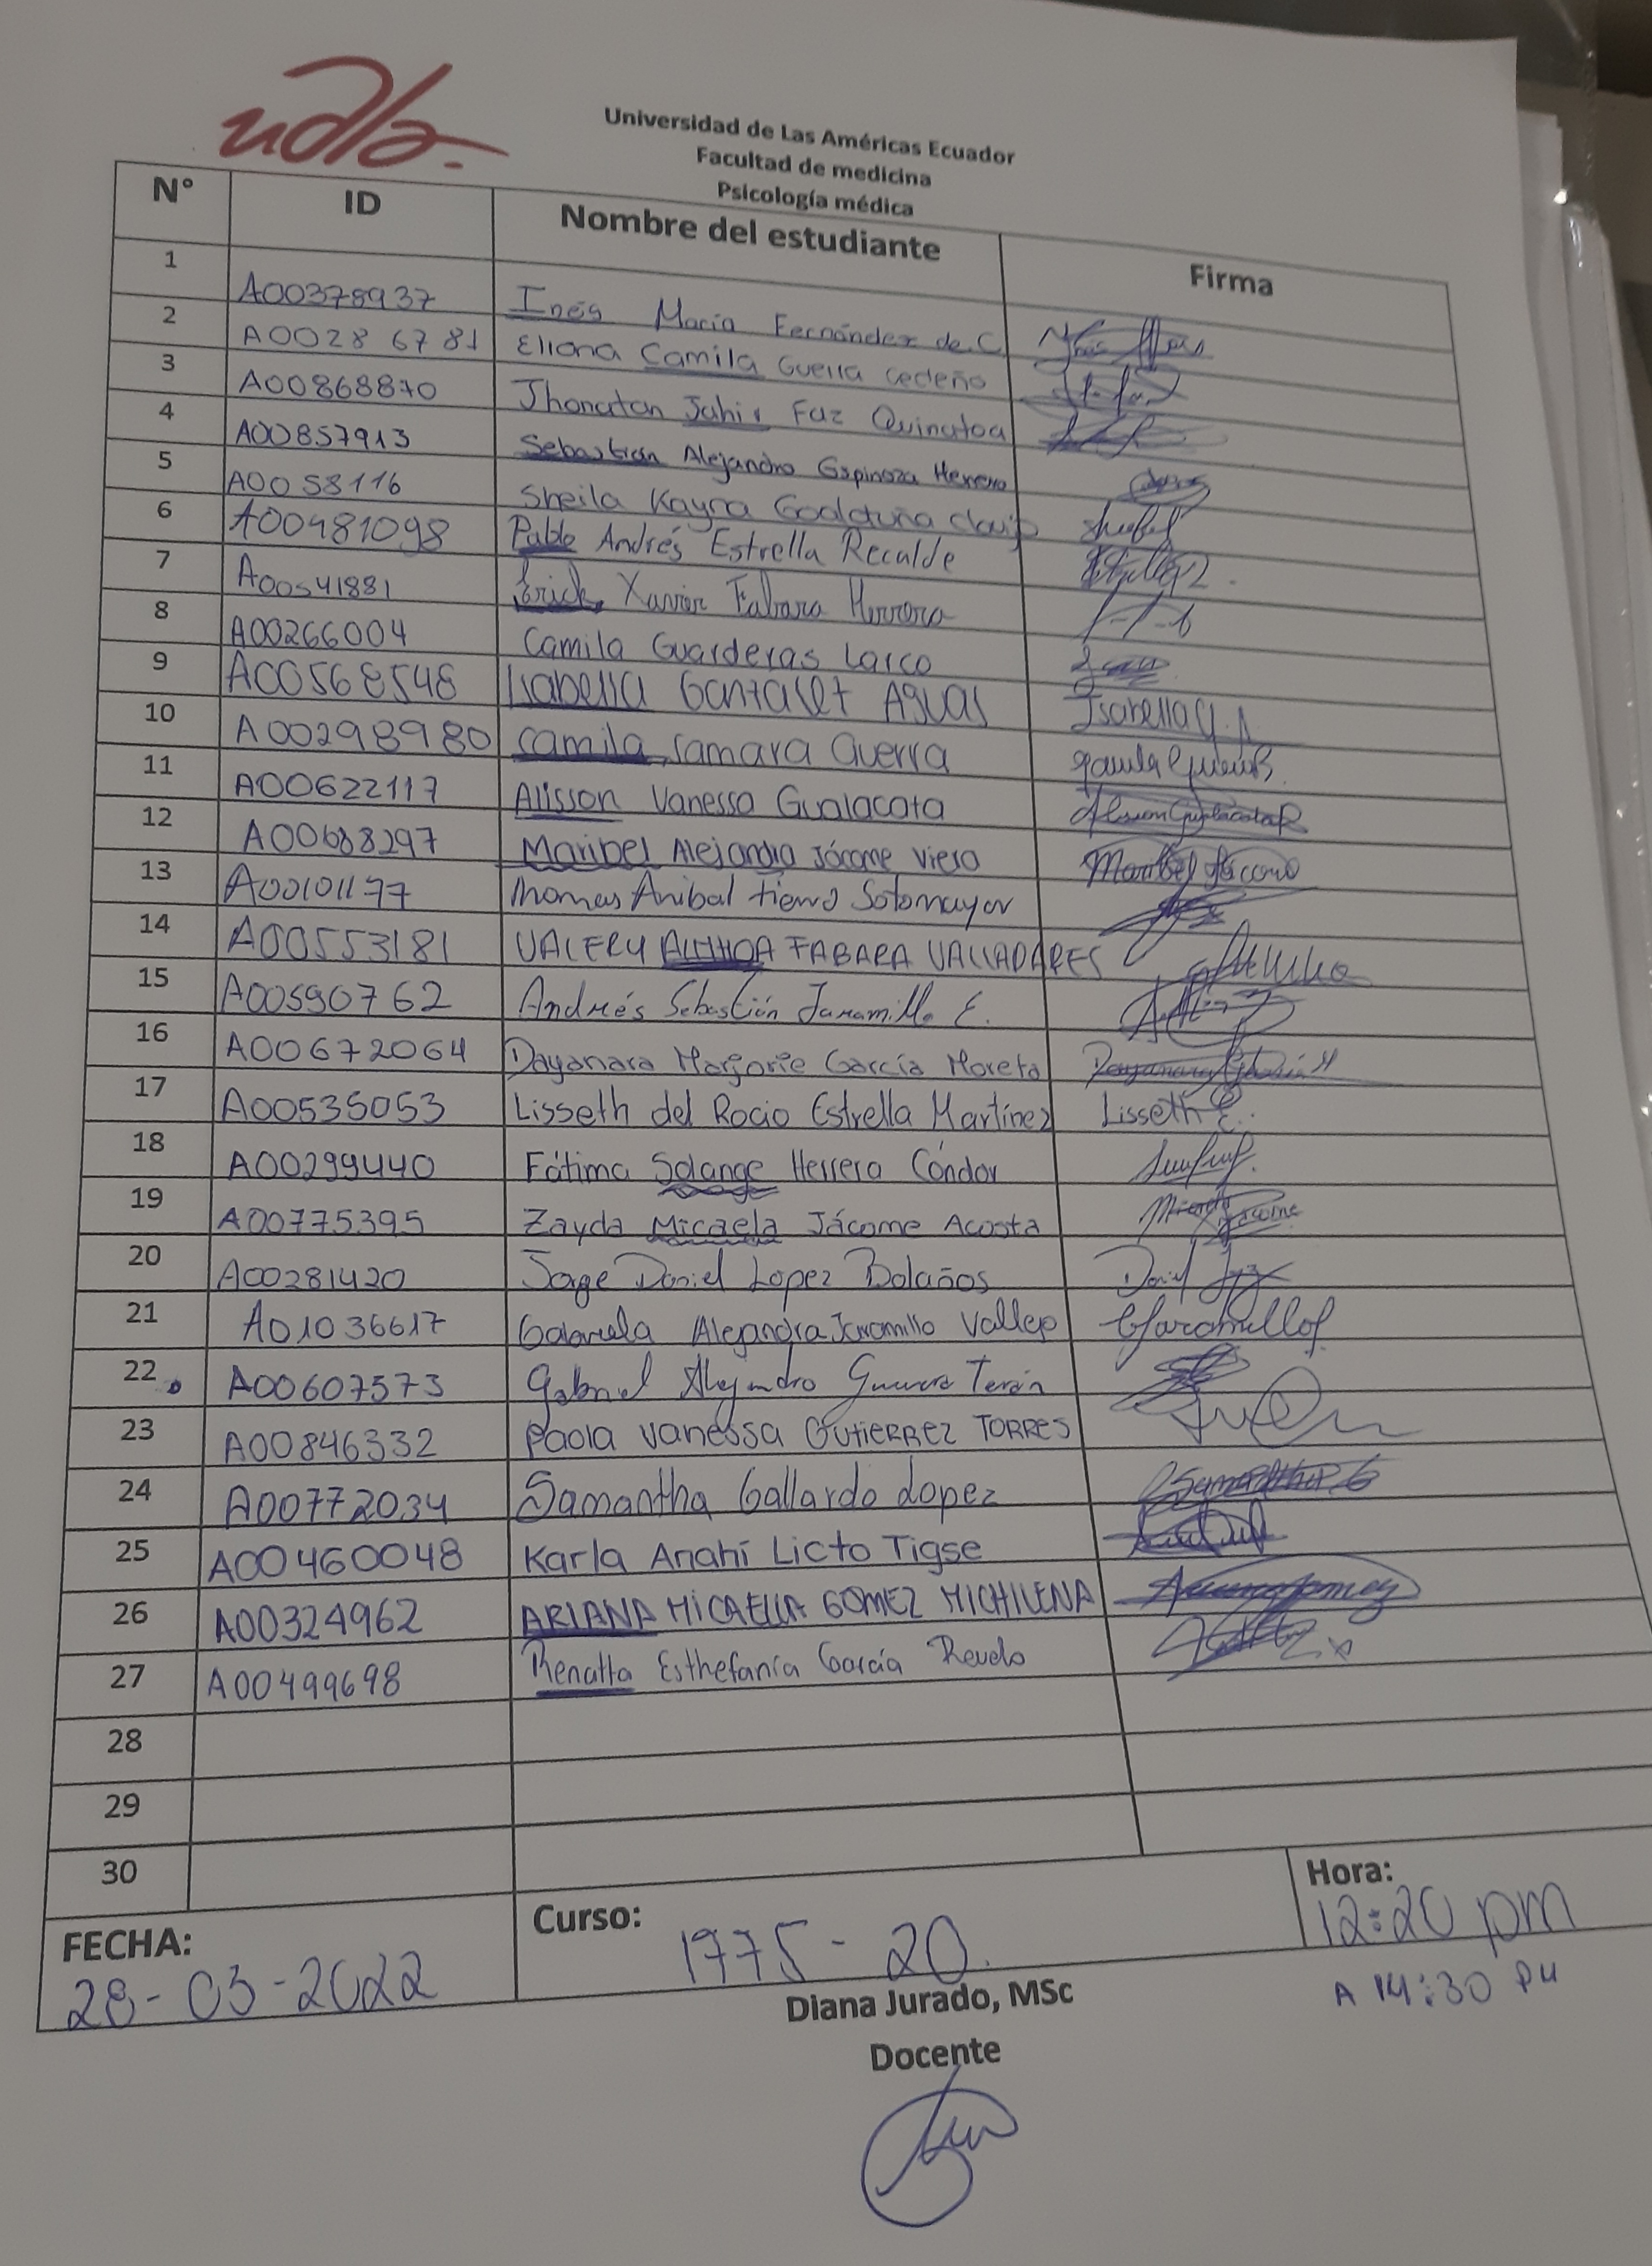 udla
Universidad de Las Américas Ecuador
Facultad de medicina
Psicología médica
N° ID Nombre del estudiante Firma
1 A00378937 Inés María Fernández de C.
2 A0028 67 81 Eliana Camila Guerra cedeño
3 A00868870 Jhonatan Jahir Faz Quinatoa
4 A00857913 Sebastián Alejandro Espinoza Herrera
5 A0058116 Sheila Kayna
6 A00481098 Pablo Andrés Estrella Recalde
7 A00541881 Erick Xavier Fabara Herrera
8 A00266004 Camila Guarderas Larco
9 A00568548 Isabella Gonzalez Aguas Isabella G. A
10 A00298980 camila samara Guerra
11 A00622117 Alisson Vanessa Gualacata
12 A00688297 Maribel Alejandra Jácome Viera Maribel Jácome
13 A00101177 Thomas Anibal tierra Sotomayor
14 A00553181 VALERY AINHOA FABARA VALLADARES
15 A00590762 Andrés Sebastián Jaramillo E.
16 A00672064 Dayanara Marjorie García Moreta
17 A00535053 Lisseth del Rocio Estrella Martínez Lisseth E.
18 A00299440 Fátima Solange Herrera Cóndor
19 A00775395 Zayda Micaela Jácome Acosta Micaela Jácome
20 A00281420 Jorge Daniel Lopez Bolaños
21 A01036617 Gabriela Alejandra Jaramillo Vallejo
22 A00607573 Gabriel Alejandro Guevara Terán
23 A00846332 Paola Vanessa GUTIERREZ TORRES
24 A00772034 Samantha Gallardo Lopez
25 A00460048 Karla Anahí Licto Tigse
26 A00324962 ARIANA MICAELLA GOMEZ MICHILENA
27 A00499698 Renatta Esthefanía García Revelo
28
29
30
FECHA: Curso: Hora:
28-03-2022 1775-20. 12:20 pm
A 14:30 PM
Diana Jurado, MSc
Docente